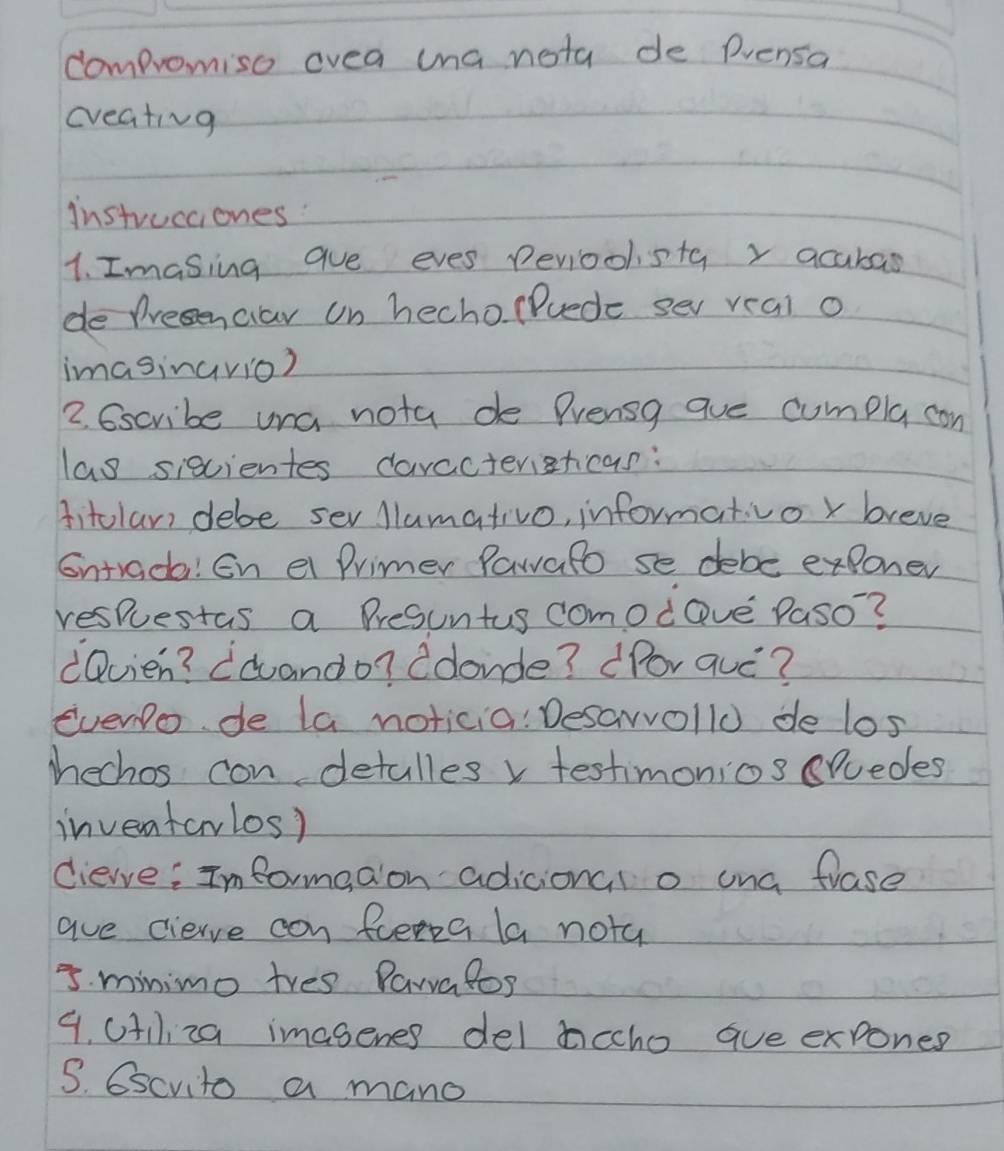 compromiso crea una nota de Prensa
creativa
instrucciones:
1. Imagina que eres Periodista y acabas
de Presenciar un hecho. (Puede ser real o
imaginario)
2. Escribe una nota de Prensa que cumpla con
las siguientes caracteristicas:
titular: debe ser llamativo, informativo y breve
Entrada: En el Primer Parrafo se debe exponer
respuestas a Preguntas como ¿Qué Paso?
¿Quién? ¿Cuando? ¿donde? ¿Por qué?
Cuerpo de la noticia: Desarrollo de los
hechos con detalles y testimonios (Puedes
inventarlos)
cierre: Informacion adicional o una frase
que cierre con fuerza la nota
3. minimo tres Parrafos
4. Utiliza imagenes del hecho que expones
5. Escrito a mano